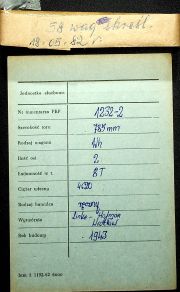 58 wag skreśl.
18.05.82 r.
Jednostka służbowa
Nr inwentarza PKP 1232-2
Szerokość toru 785 mm
Rodzaj wagonu Wh
Ilość osi 2
Ładowność w t. 8T
Ciężar własny 4090
Rodzaj hamulca ręczny
Wytwórnia Linke-Hofman
Rok budowy 1943